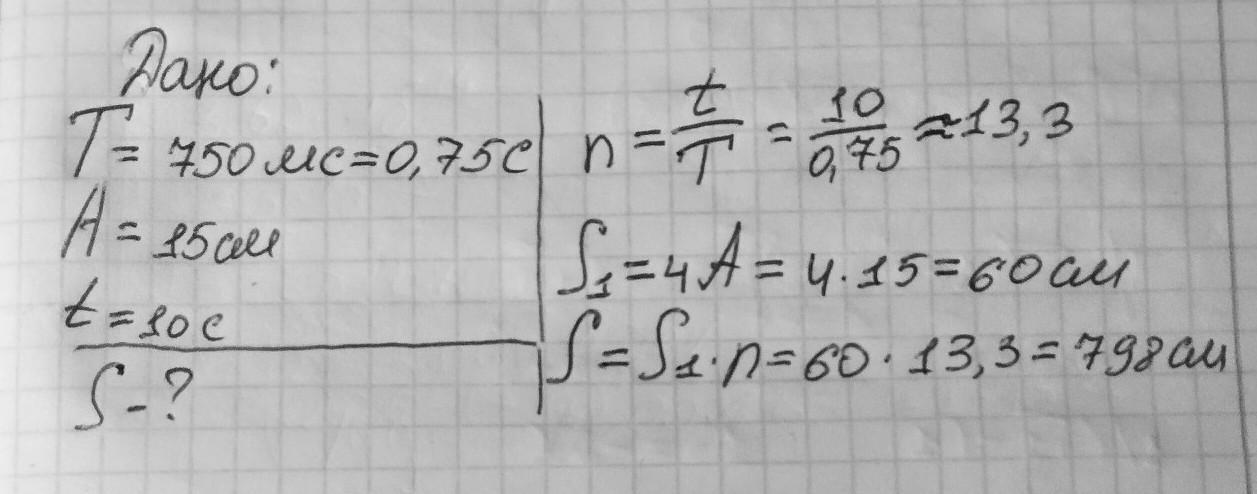 Дано:
T = 750 мс = 0,75 с
A = 15 см
t = 10 с
S - ?
n = t/T = 10/0,75 ≈ 13,3
S₁ = 4A = 4 · 15 = 60 см
S = S₁ · n = 60 · 13,3 = 798 см